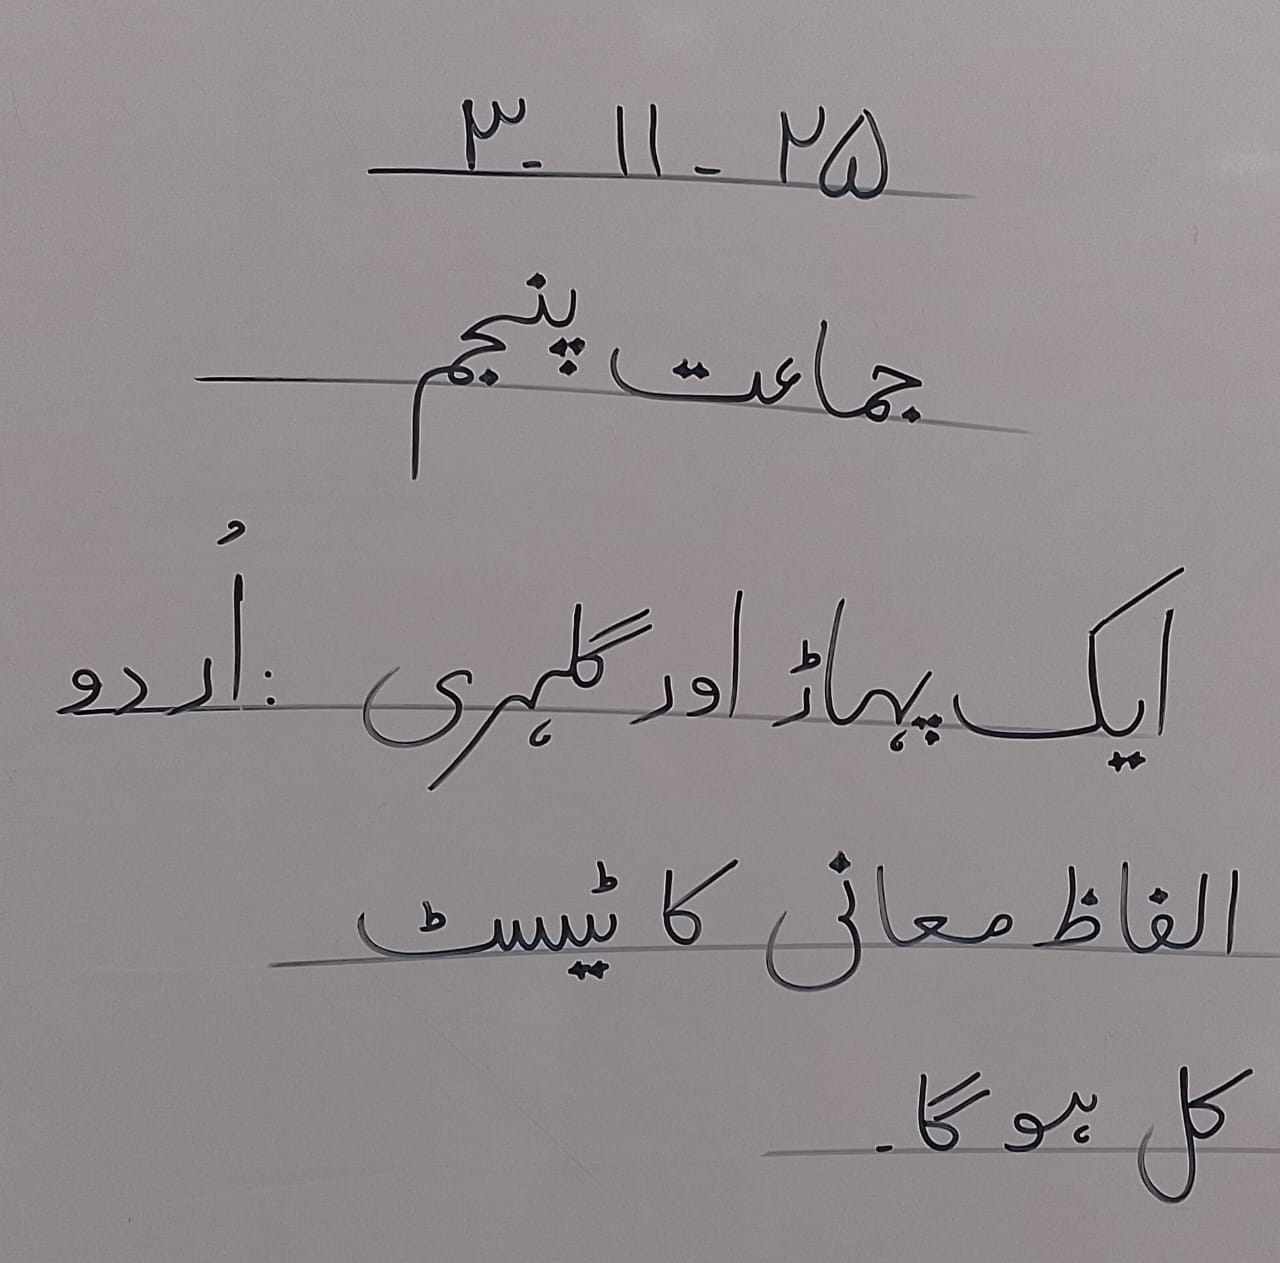 ۳- ۱۱ - ۲۵
جماعت پنجم
ایک پہاڑ اور گلہری :اُردو
الفاظ معانی کا ٹیسٹ
کل ہو گا۔